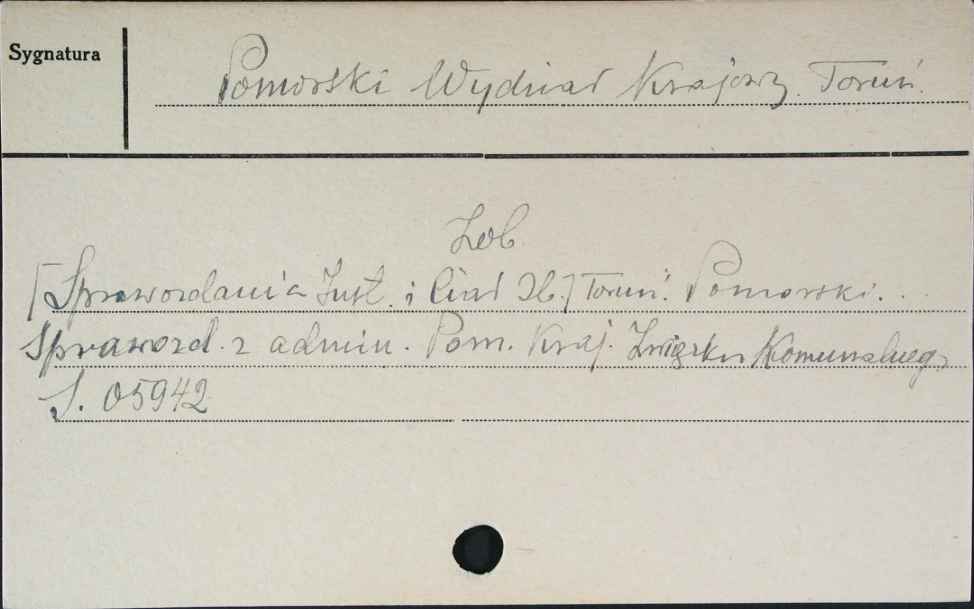 Sygnatura
Pomorski Wydział Krajowy. Toruń.
Zob.
[Sprawozdania Inst. i Ciał Zb.] Toruń. Pomorski...
Sprawozd. z admin. Pom. Kraj. Związku Komunalnego
S. 05942